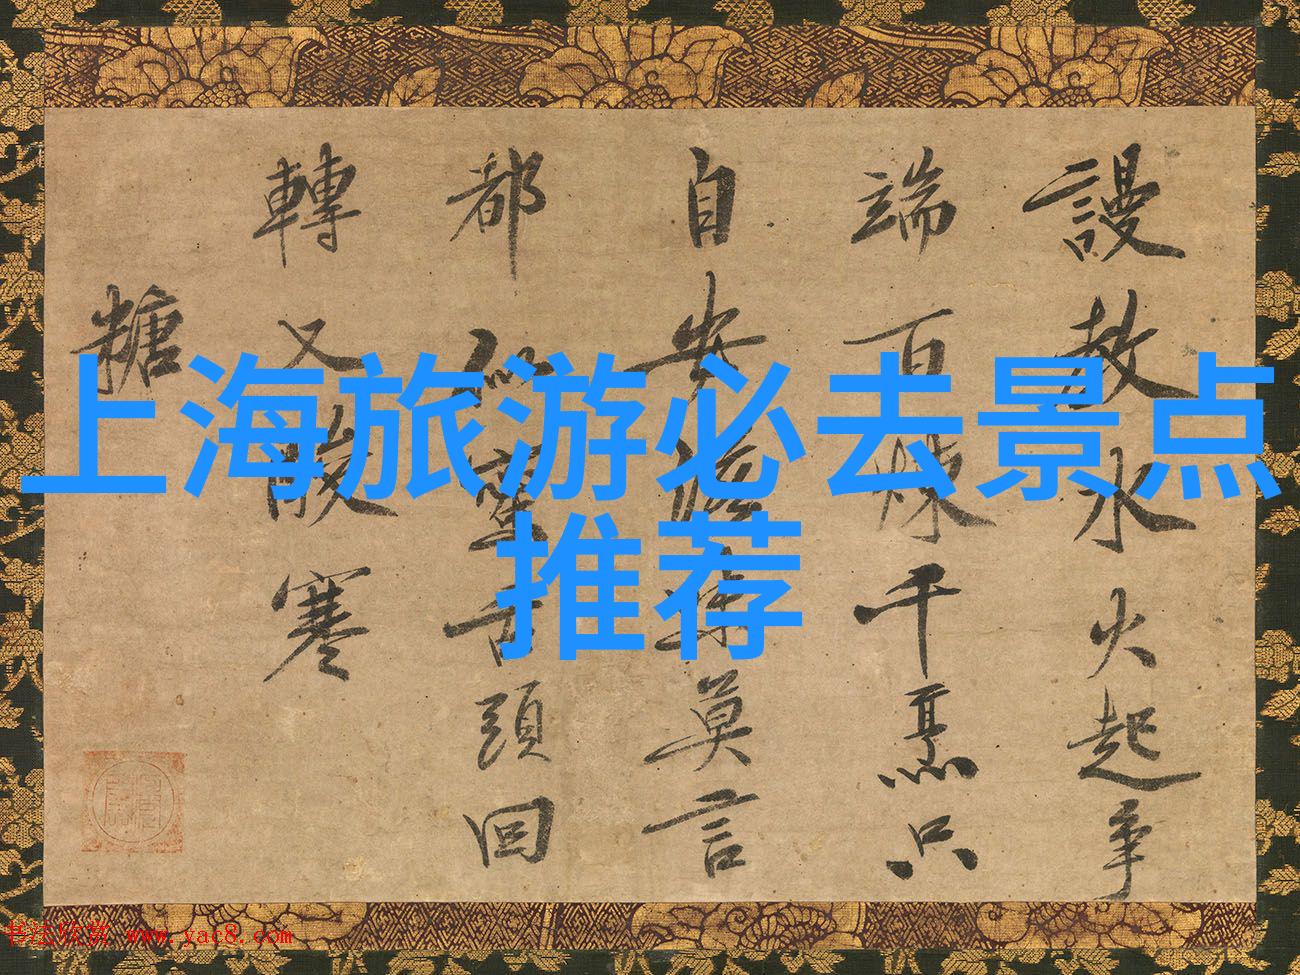 上海旅游必去景点
推荐
謾教水火起爭
端百煉千熏只
自安莫言
都似舌頭回
轉又酸寒
糖
书法欣赏 www.yac8.com